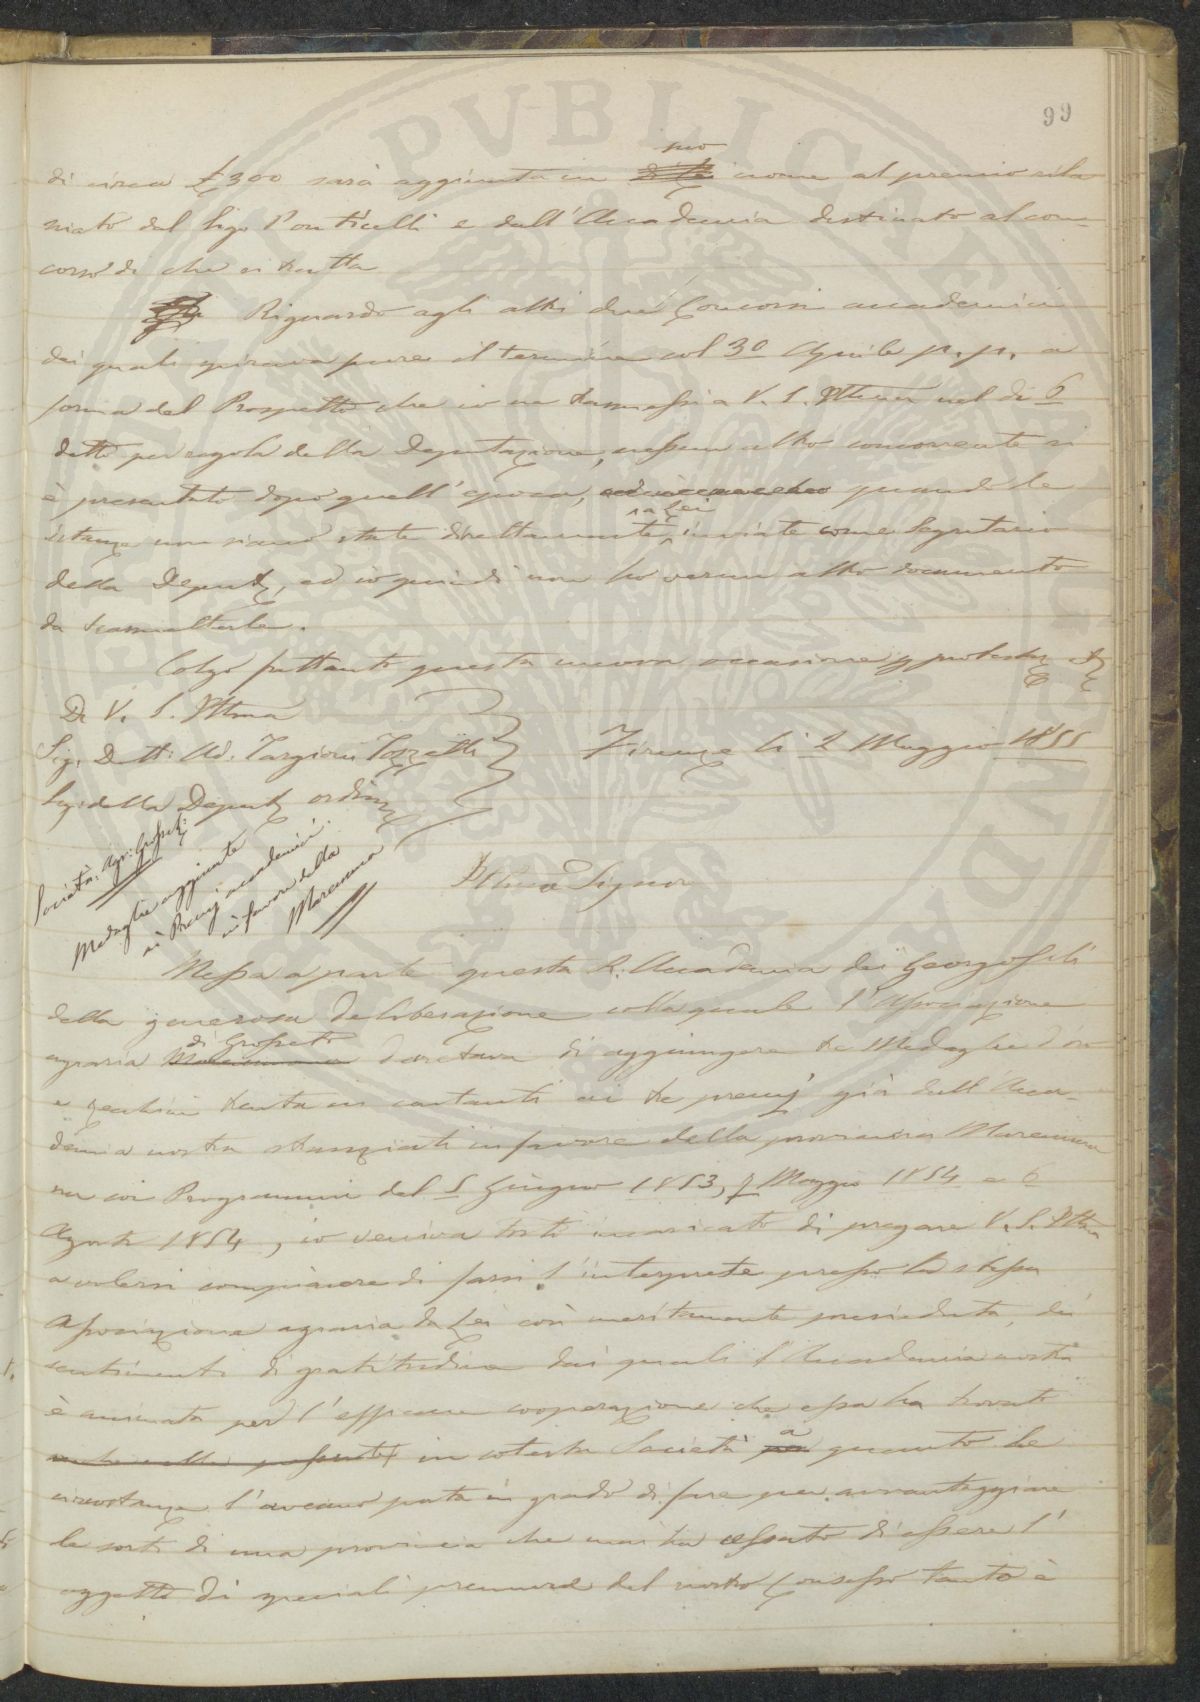 99
di circa £300 sarà aggiunta in suo nome al premio rila-
sciato dal Sigr Ponticelli e dall'Accademia destinato al con-
corso di che si tratta
Riguardo agli altri due Concorsi accademici
dei quali spirava pure il termine col 30 Aprile p.p. a
forma del Prospetto che io ne trasmessi a V. S. Illma nel dì 6
detto per regola della Deputazione, nessun altro concorrente si
è presentato dopo quell'epoca, quando le
istanze non siano state direttamente a Lei inviate come Segretario
della Deputz, ed io quindi non ho verun altro documento
da trasmetterle.
Colgo frattanto questa nuova occasione p protestarz etz
Di V. S. Illma
Sig. Dtt: Ad. Targioni Tozzetti
Firenze li 2 Maggio 1855
Seg: della Deputz ordinz
Società: Agr: Grosset:
Medaglie aggiunte
ai Premj accademici
in favore della
Maremma
Illmo Signor
Messa a parte questa R. Accademia dei Georgofili
della generosa deliberazione colla quale l'Associazione
agraria di Grosseto decretava di aggiungere tre Medaglie d'oro
e zecchini trenta in contanti ai tre premj già dall'Acca-
demia nostra stanziati in favore della provincia Maremma
na coi Programmi del 5 Giugno 1853, 7 Maggio 1854 e 6
Agosto 1854, io veniva tosto incaricato di pregare V. S. Illma
a volersi compiacere di farsi l'interprete presso la stessa
Associazione agraria da Lei così meritamente presieduta, dei
sentimenti di gratitudine dai quali l'Accademia nostra
è animata per l'efficace cooperazione che essa ha trovato
in cotesta Società a quanto le
circostanze l'avevano posta in grado di fare per avvantaggiare
le sorti di una provincia che mai ha cessato di essere l'
oggetto di speciali premure del nostro Consesso tanto è